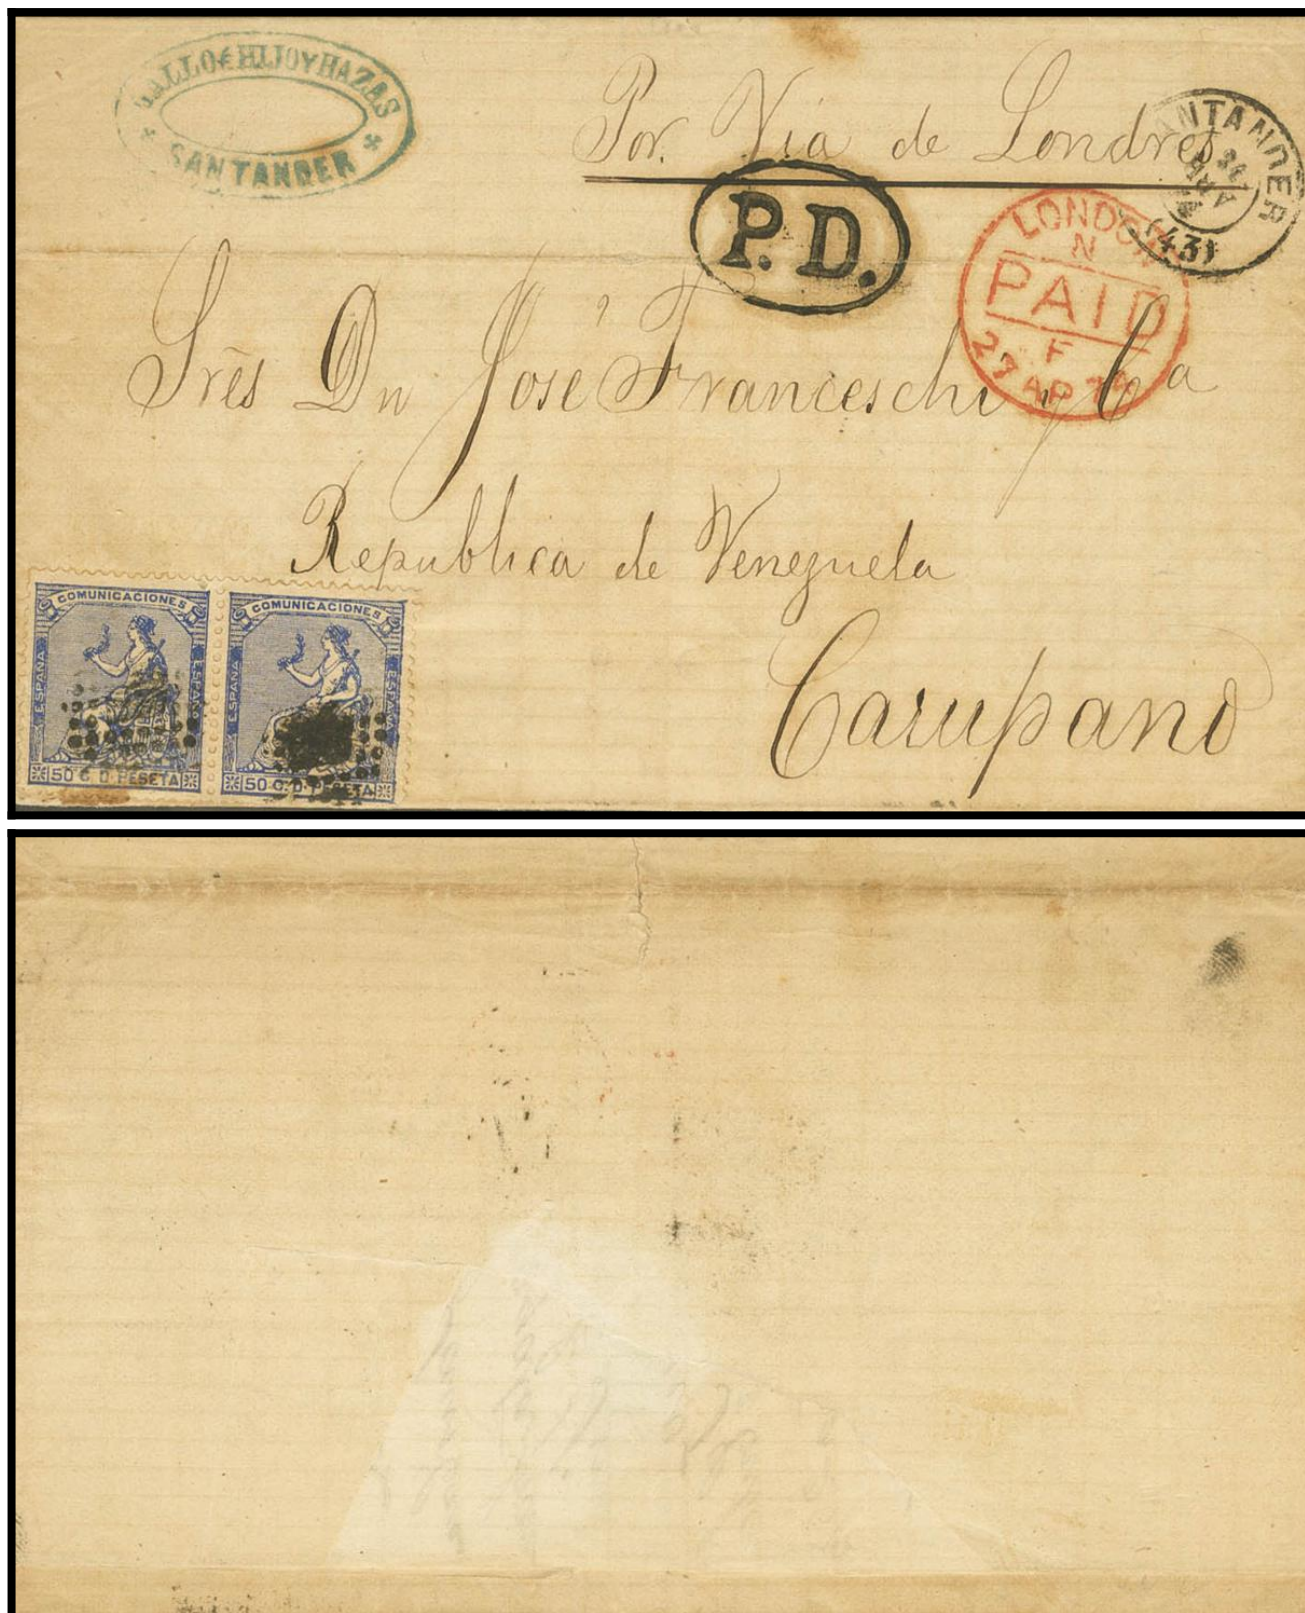 GALLO É HIJO Y HAZAS
SANTANDER
Por Via de Londres
P. D.
LONDON
N
PAID
F
27 AP 74
SANTANDER
ABR
(43)
Srēs Dn José Franceschi y Ca
Republica de Venezuela
Carupano
COMUNICACIONES
ESPAÑA
ESPAÑA
50 C. D. PESETA
COMUNICACIONES
ESPAÑA
ESPAÑA
50 C. D. PESETA